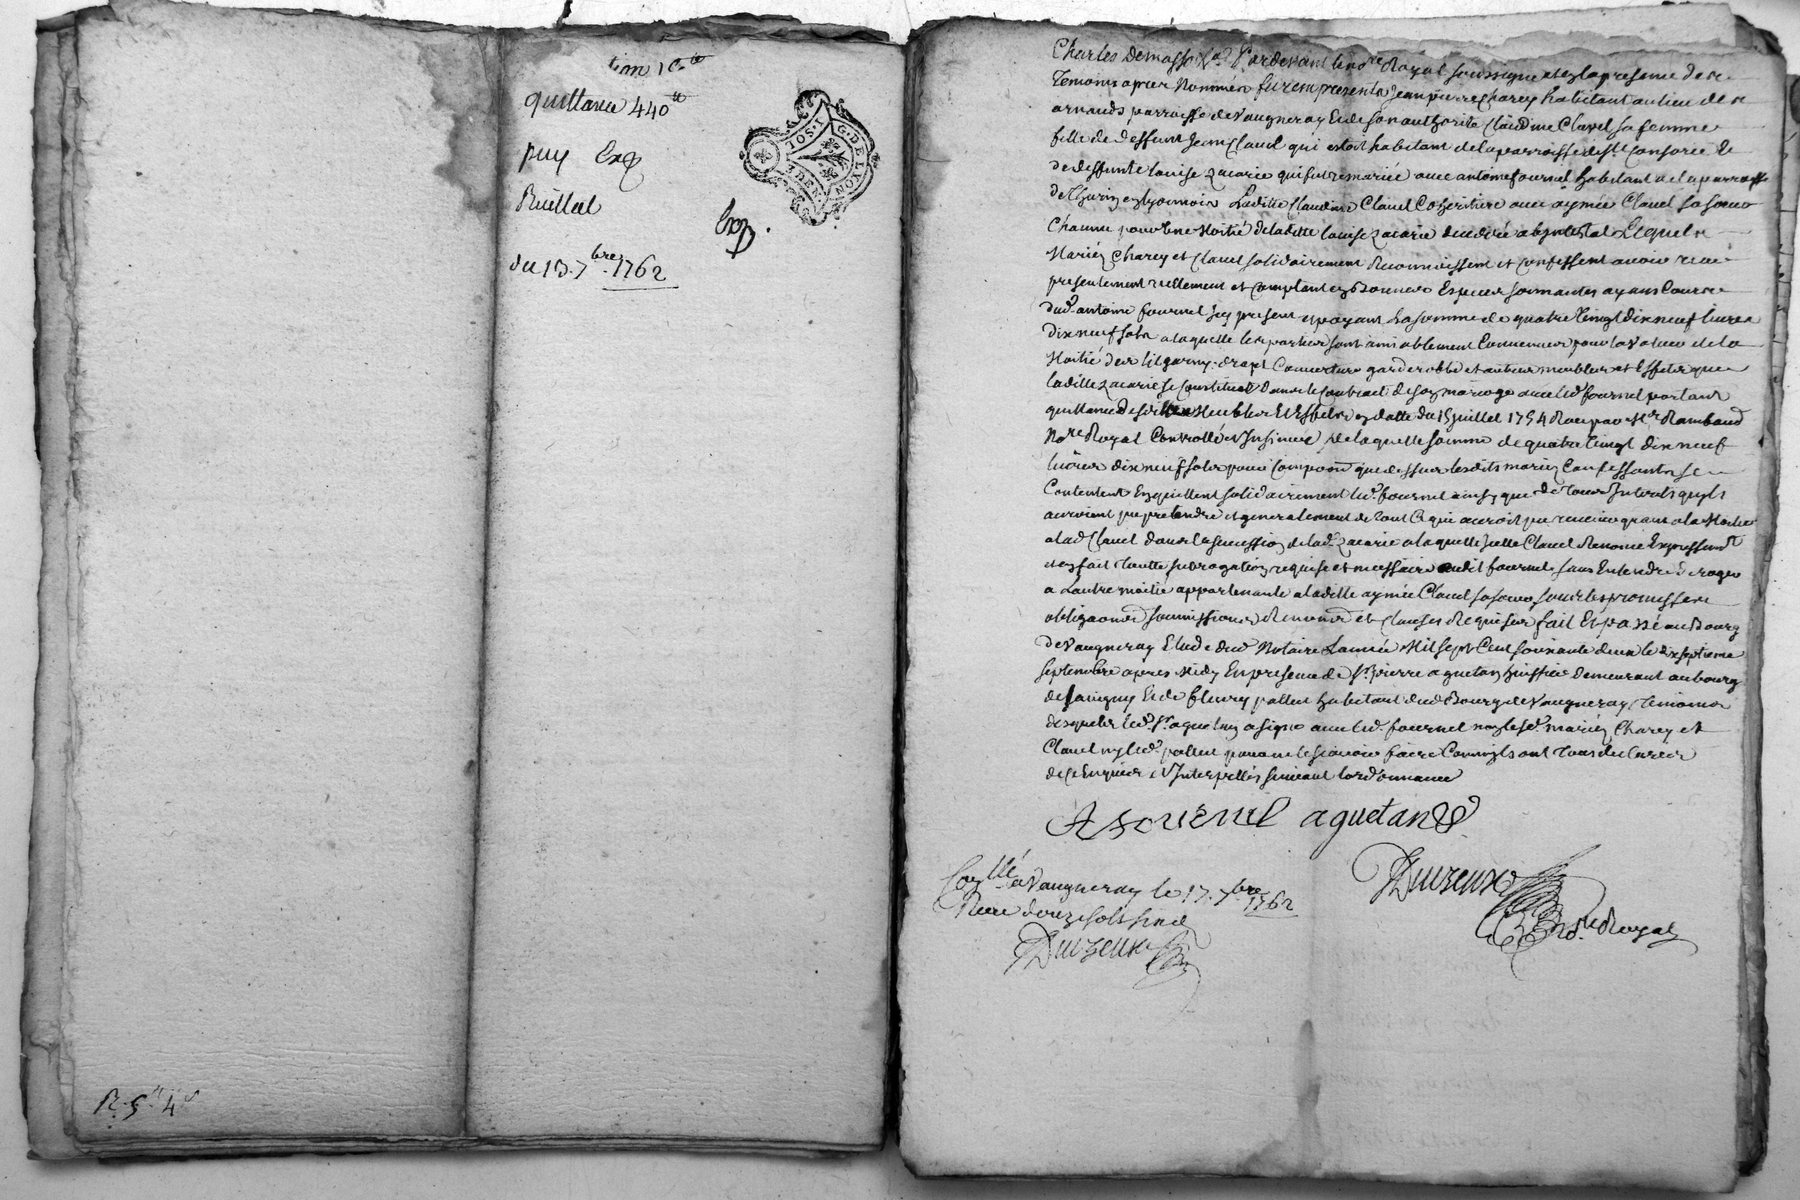 tion 1c.te
quittance 440 tt
puy Exp
Ruillat
du 13. 7bre. 1762
Exp.
G. DE LYON
R. 5 tt 4 s
Charles Par devant le no.re Royal soussigné et en la presence des
Temoins apres Nommés furent presents Jean pierre Charey habitant au lieu des
arnauds parroisse de Vaugneray Et de son authorité Claudine Clavel sa femme
fille de deffunt Jean Clavel qui estoit habitant de la parroisse de St. Consorce Et
de deffunte louise Zacarie qui fut remariée avec antoine fournel habitant de la parroisse
de Thurin en lyonnois Laditte Claudine Clavel Coheritiere avec aymée Clavel sa soeur
Chacune pour Une Moitié de laditte louise Zacarie decedée abintestat Lesquels
Mariés Charey et Clavel solidairement Reconnoissent et Confessent avoir receu
presentement reellement et Comptant en Bonnes Especes sonnantes ayans Cours
dud. antoine fournel Icy present et payant La somme de quatre Vingt dix neuf livres
dix neuf sols a laquelle les parties sont amiablement Convenues pour la Valeur de la
Moitié des lit garny. draps Couverture garderobbe et autres meubles et Effets que
laditte Zacarie se Constitua dans le Contract de son mariage avec led. fournel portant
quittance desdits Meubles Et Effets en datte du 15 Juillet 1754 Receu par Me. Rambaud
No.re Royal Controllé et Insinué de laquelle somme de quatre Vingt dix neuf
livres dix neuf sols pour que dessus lesdits mariés Confessants se
Contentent En quittent solidairement led. fournel ainsy que de Tous Interets qu'ils
auroient pu pretendre et generalement de Tout Ce qui auroit pu revenir a la Moitié
a lad. Clavel dans la succession de lad. Zacarie a laquelle Icelle Clavel Renonce Expressement
et en fait Toutte subrogation requise et necessaire audit fournel sans Entendre deroger
a Lautre moitié appartenante a laditte aymée Clavel sa soeur sous les promesses
obligaons soumissions Renons. et Clauses Requises fait Et passé au Bourg
de Vaugneray Etude dud. Notaire L'année Mil sept Cent soixante deux le dix septieme
septembre apres Midy En presence de Sr. pierre aguetan huissier demeurant au bourg
de Savigny Et de fleury pallut habitant dud. Bourg de Vaugneray Temoins
desquels led. Sr. aguetan a signé avec led. fournel non lesd. mariés Charey et
Clavel ny led. pallut pour ne le sçavoir faire Comme ils ont Tous declarés
de Ce Enquis et Interpellés suivant lordonnance
A fournel aguetan
Con.llé a Vaugneray le 17. 7bre 1762
Receu douze sols six d
Duvzeux
Duvzeux
No.re Royal